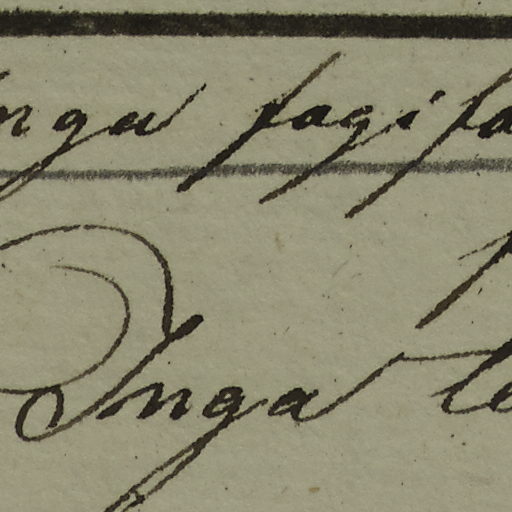 nga fagifo
Inga le